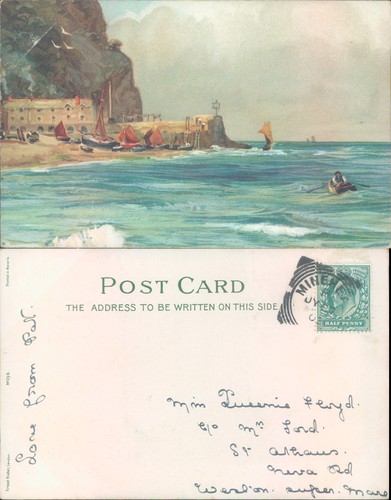 POST CARD
THE ADDRESS TO BE WRITTEN ON THIS SIDE
HALF PENNY
Love from Pat.
Miss Queenie Floyd.
c/o Mrs Ford.
St Albans
Neva Rd
Weston super Mare